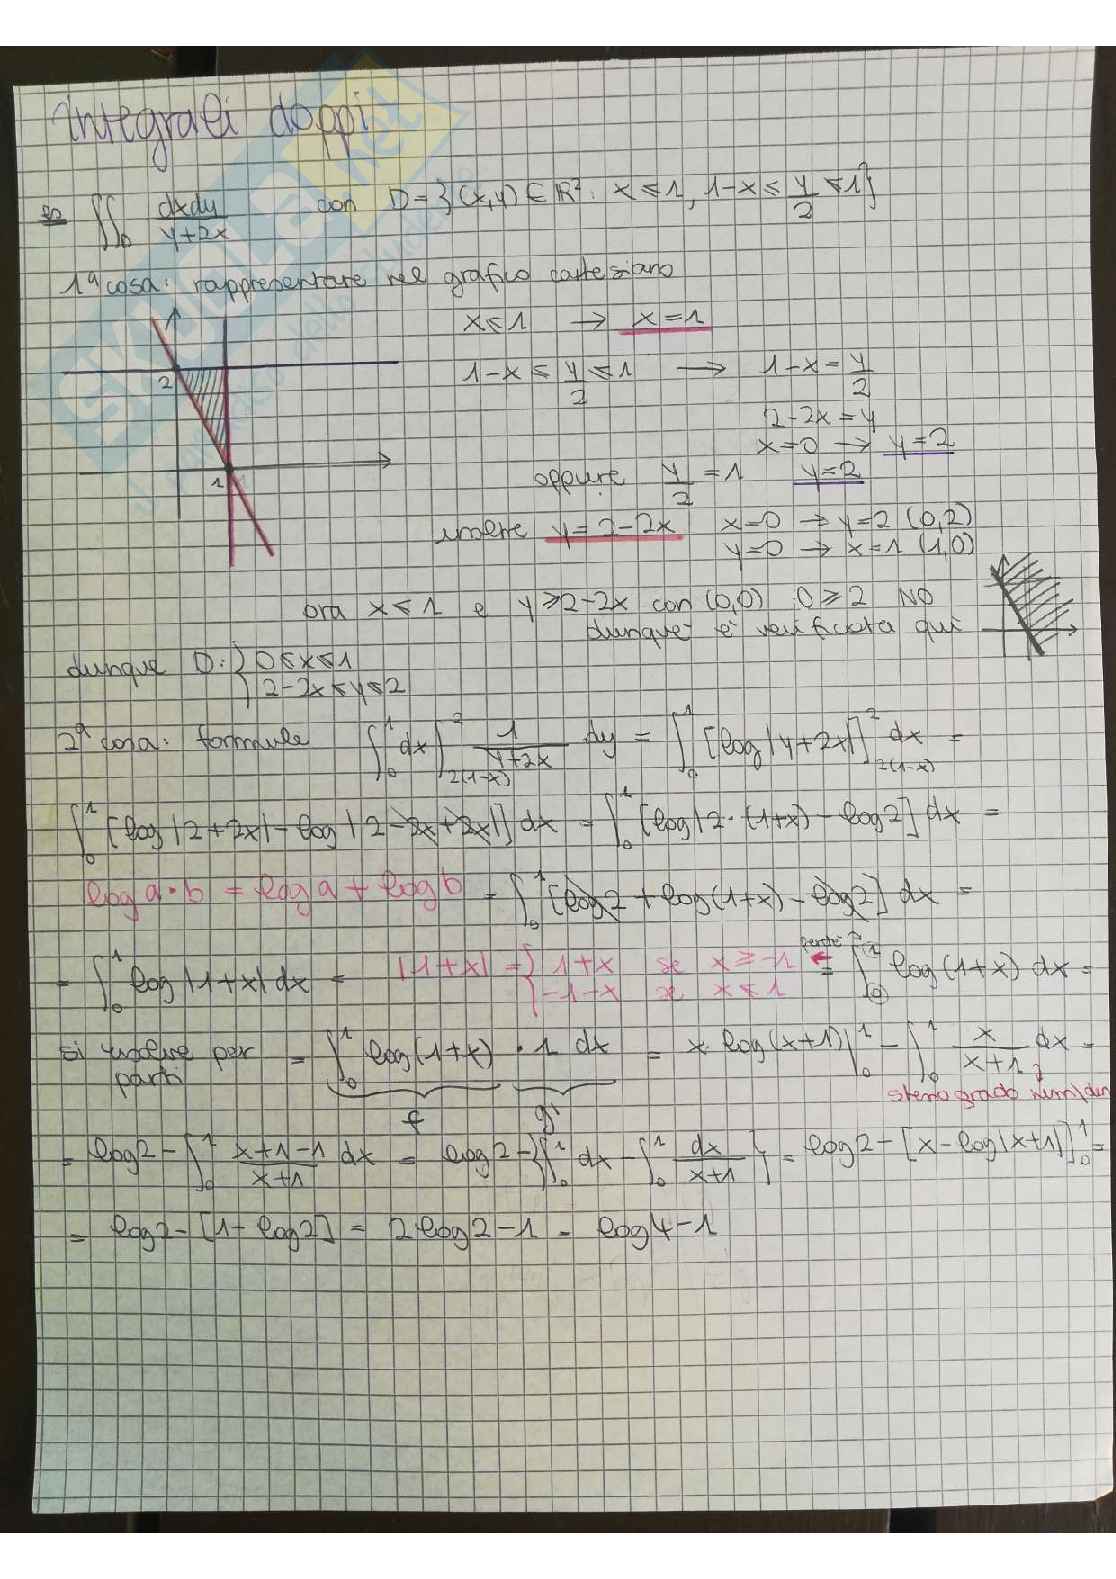 Integrali doppi
es ∬_D dxdy/(y+2x) con D={(x,y)∈ℝ²: x≤1, 1-x≤y/2≤1}
1ª cosa: rappresentare nel grafico cartesiano
x≤1 → x=1
1-x≤y/2≤1 → 1-x=y/2
2
2-2x=y
x=0 → y=2
oppure y/2=1 y=2
1
inoltre y=2-2x x=0 → y=2 (0,2)
y=0 → x=1 (1,0)
ora x≤1 e y≥2-2x con (0,0) 0≥2 NO
dunque è verificata qui
dunque D:{0≤x≤1
2-2x≤y≤2
2ª cosa: formule ∫_0^1 dx ∫_{2(1-x)}^2 1/(y+2x) dy = ∫_0^1 [log|y+2x|]_{2(1-x)}^2 dx =
∫_0^1 [log|2+2x|-log|2-2x+2x|] dx = ∫_0^1 [log|2·(1+x)-log2] dx =
log a·b = log a + log b = ∫_0^1 [log2+log(1+x)-log2] dx =
= ∫_0^1 log|1+x| dx = |1+x| = { 1+x se x≥-1 perché = ∫_0^1 log(1+x) dx =
-1-x se x≤1
si risolve per parti = ∫_0^1 log(1+x)·1 dx = x log(x+1)|_0^1 - ∫_0^1 x/(x+1) dx =
stesso grado num/den
f g'
= log2-∫_0^1 (x+1-1)/(x+1) dx = log2-{∫_0^1 dx-∫_0^1 dx/(x+1)} = log2-[x-log|x+1|]_0^1 =
= log2-[1-log2] = 2log2-1 = log4-1